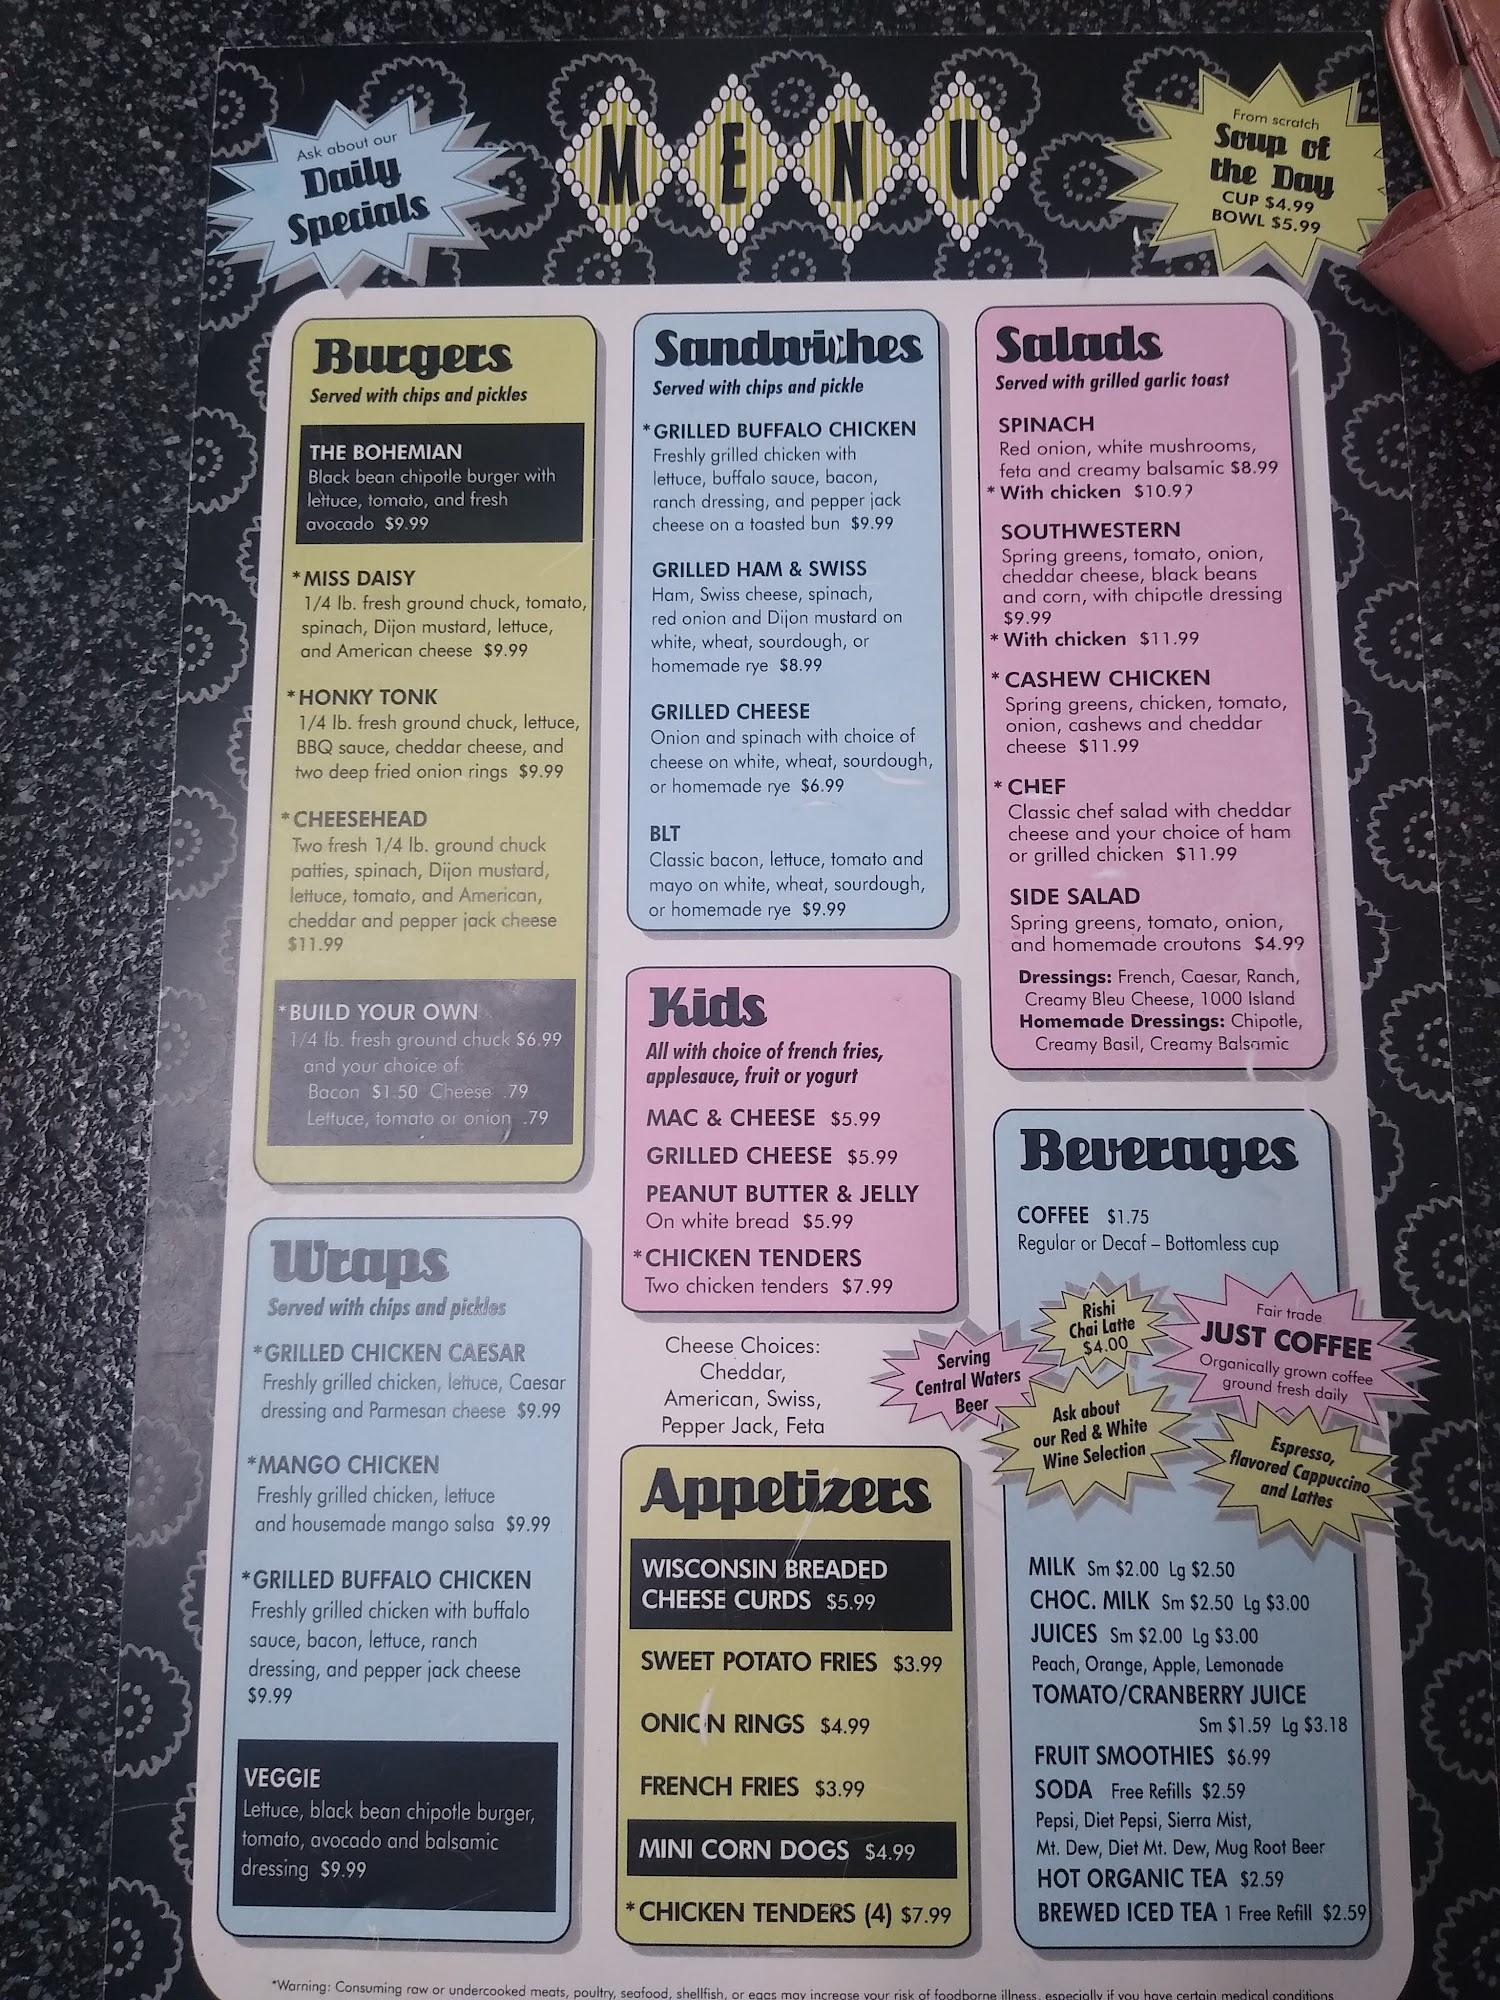 Ask about our
Daily
Specials
MENU
From scratch
Soup of
the Day
CUP $4.99
BOWL $5.99
Burgers
Served with chips and pickles
THE BOHEMIAN
Black bean chipotle burger with
lettuce, tomato, and fresh
avocado $9.99
*MISS DAISY
1/4 lb. fresh ground chuck, tomato,
spinach, Dijon mustard, lettuce,
and American cheese $9.99
*HONKY TONK
1/4 lb. fresh ground chuck, lettuce,
BBQ sauce, cheddar cheese, and
two deep fried onion rings $9.99
*CHEESEHEAD
Two fresh 1/4 lb. ground chuck
patties, spinach, Dijon mustard,
lettuce, tomato, and American,
cheddar and pepper jack cheese
$11.99
*BUILD YOUR OWN
1/4 lb. fresh ground chuck $6.99
and your choice of:
Bacon $1.50 Cheese .79
Lettuce, tomato or onion .79
Wraps
Served with chips and pickles
*GRILLED CHICKEN CAESAR
Freshly grilled chicken, lettuce, Caesar
dressing and Parmesan cheese $9.99
*MANGO CHICKEN
Freshly grilled chicken, lettuce
and housemade mango salsa $9.99
*GRILLED BUFFALO CHICKEN
Freshly grilled chicken with buffalo
sauce, bacon, lettuce, ranch
dressing, and pepper jack cheese
$9.99
VEGGIE
Lettuce, black bean chipotle burger,
tomato, avocado and balsamic
dressing $9.99
Sandwiches
Served with chips and pickle
*GRILLED BUFFALO CHICKEN
Freshly grilled chicken with
lettuce, buffalo sauce, bacon,
ranch dressing, and pepper jack
cheese on a toasted bun $9.99
GRILLED HAM & SWISS
Ham, Swiss cheese, spinach,
red onion and Dijon mustard on
white, wheat, sourdough, or
homemade rye $8.99
GRILLED CHEESE
Onion and spinach with choice of
cheese on white, wheat, sourdough,
or homemade rye $6.99
BLT
Classic bacon, lettuce, tomato and
mayo on white, wheat, sourdough,
or homemade rye $9.99
Kids
All with choice of french fries,
applesauce, fruit or yogurt
MAC & CHEESE $5.99
GRILLED CHEESE $5.99
PEANUT BUTTER & JELLY
On white bread $5.99
*CHICKEN TENDERS
Two chicken tenders $7.99
Cheese Choices:
Cheddar,
American, Swiss,
Pepper Jack, Feta
Appetizers
WISCONSIN BREADED
CHEESE CURDS $5.99
SWEET POTATO FRIES $3.99
ONION RINGS $4.99
FRENCH FRIES $3.99
MINI CORN DOGS $4.99
*CHICKEN TENDERS (4) $7.99
Salads
Served with grilled garlic toast
SPINACH
Red onion, white mushrooms,
feta and creamy balsamic $8.99
*With chicken $10.99
SOUTHWESTERN
Spring greens, tomato, onion,
cheddar cheese, black beans
and corn, with chipotle dressing
$9.99
*With chicken $11.99
*CASHEW CHICKEN
Spring greens, chicken, tomato,
onion, cashews and cheddar
cheese $11.99
*CHEF
Classic chef salad with cheddar
cheese and your choice of ham
or grilled chicken $11.99
SIDE SALAD
Spring greens, tomato, onion,
and homemade croutons $4.99
Dressings: French, Caesar, Ranch,
Creamy Bleu Cheese, 1000 Island
Homemade Dressings: Chipotle,
Creamy Basil, Creamy Balsamic
Beverages
COFFEE $1.75
Regular or Decaf – Bottomless cup
Serving
Central Waters
Beer
Rishi
Chai Latte
$4.00
Fair trade
JUST COFFEE
Organically grown coffee
ground fresh daily
Ask about
our Red & White
Wine Selection
Espresso,
flavored Cappuccino
and Lattes
MILK Sm $2.00 Lg $2.50
CHOC. MILK Sm $2.50 Lg $3.00
JUICES Sm $2.00 Lg $3.00
Peach, Orange, Apple, Lemonade
TOMATO/CRANBERRY JUICE
Sm $1.59 Lg $3.18
FRUIT SMOOTHIES $6.99
SODA Free Refills $2.59
Pepsi, Diet Pepsi, Sierra Mist,
Mt. Dew, Diet Mt. Dew, Mug Root Beer
HOT ORGANIC TEA $2.59
BREWED ICED TEA 1 Free Refill $2.59
*Warning: Consuming raw or undercooked meats, poultry, seafood, shellfish, or eggs may increase your risk of foodborne illness, especially if you have certain medical conditions